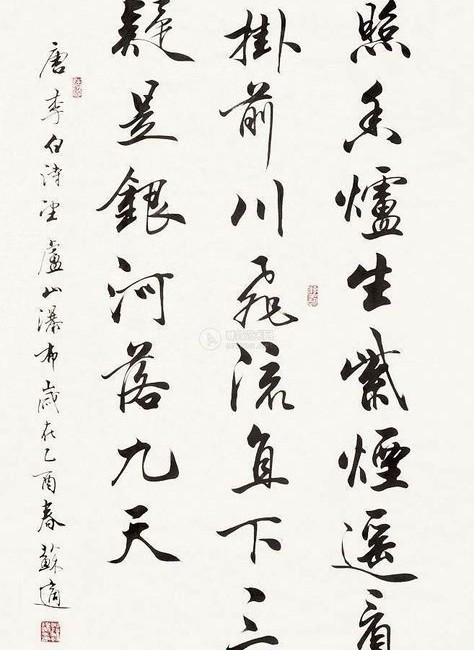 照香爐生紫煙遥看
掛前川飛流直下三
疑是銀河落九天
唐李白詩望廬山瀑布歲在乙酉春蘇適